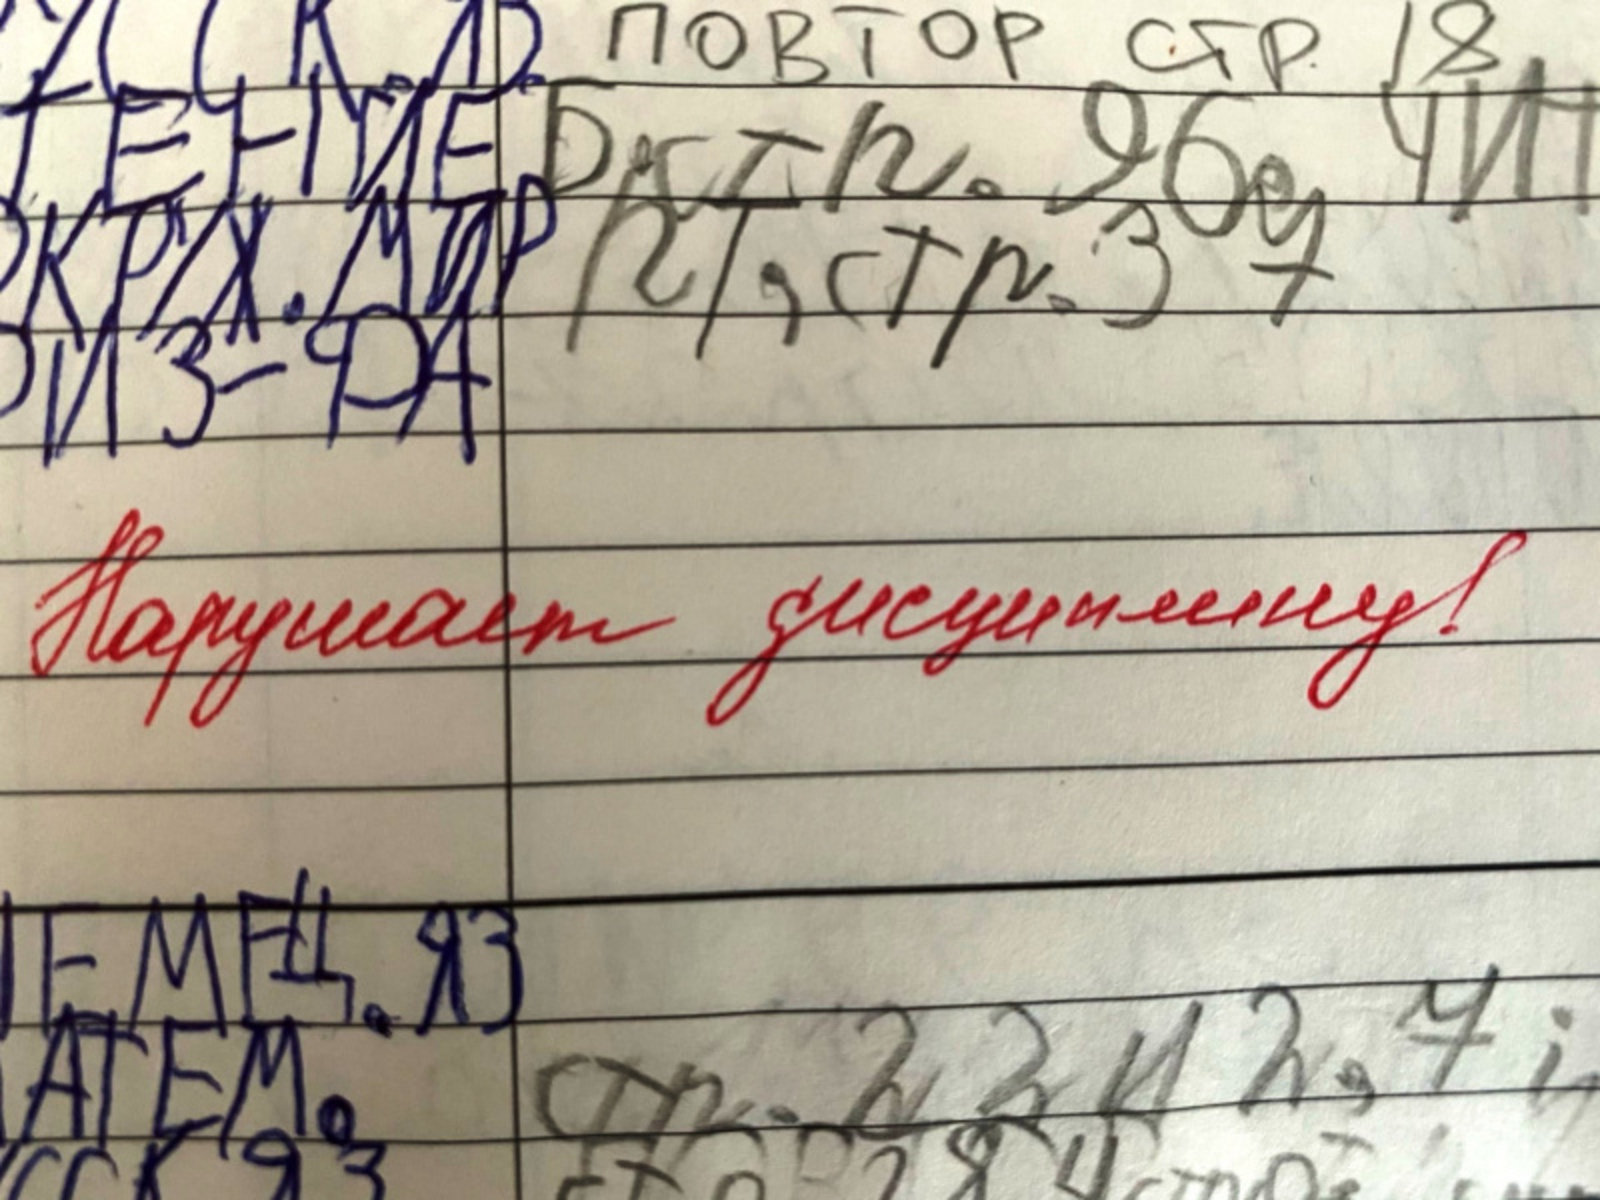 УССК.ЯЗ. ПОВТОР СТР. 18
ТЕНИЕ стр. 96 ЧИТ
ОКРУЖ.МИР РТ, стр. 37
ФИЗ-РА
Нарушает дисциплину!
НЕМЕЦ.ЯЗ
МАТЕМ. стр. 22 И 2. 7
УССК ЯЗ